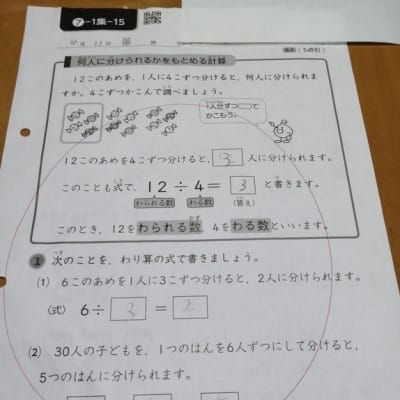 ⑦-1集-15
何人に分けられるかをもとめる計算
12このあめを、1人に4こずつ分けると、何人に分けられま
すか。4こずつかこんで調べましょう。
1人分ずつ◯で
かこもう。
12このあめを4こずつ分けると、3人に分けられます。
このことも式で、12÷4=3と書きます。
わられる数 わる数 (答え)
このとき、12をわられる数、4をわる数といいます。
1 次のことを、わり算の式で書きましょう。
(1) 6このあめを1人に3こずつ分けると、2人に分けられます。
(式) 6÷3=2
(2) 30人の子どもを、1つのはんを6人ずつにして分けると、
5つのはんに分けられます。